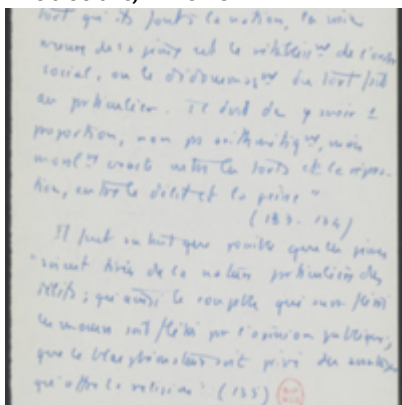 tort qu'ils font à la nation, la vraie
mesure de la peine est le rétablissmt de l'ordre
social, ou le dédommagmt du tort fait
au particulier. Il doit donc y avoir 1
proportion, non ps arithmétiqt, mais
moralmt exacte entre les torts et la répara-
tion, entre le délit et la peine "
(183-184)
Il faut autant que possible que les peines
"soient tirées de la nature particulière des
délits; qu'ainsi le coupable qui aura flétri
les moeurs soit flétri par l'opinion publique;
que le blasphémateur soit privé des avantages
qu'offre la religion" (135)